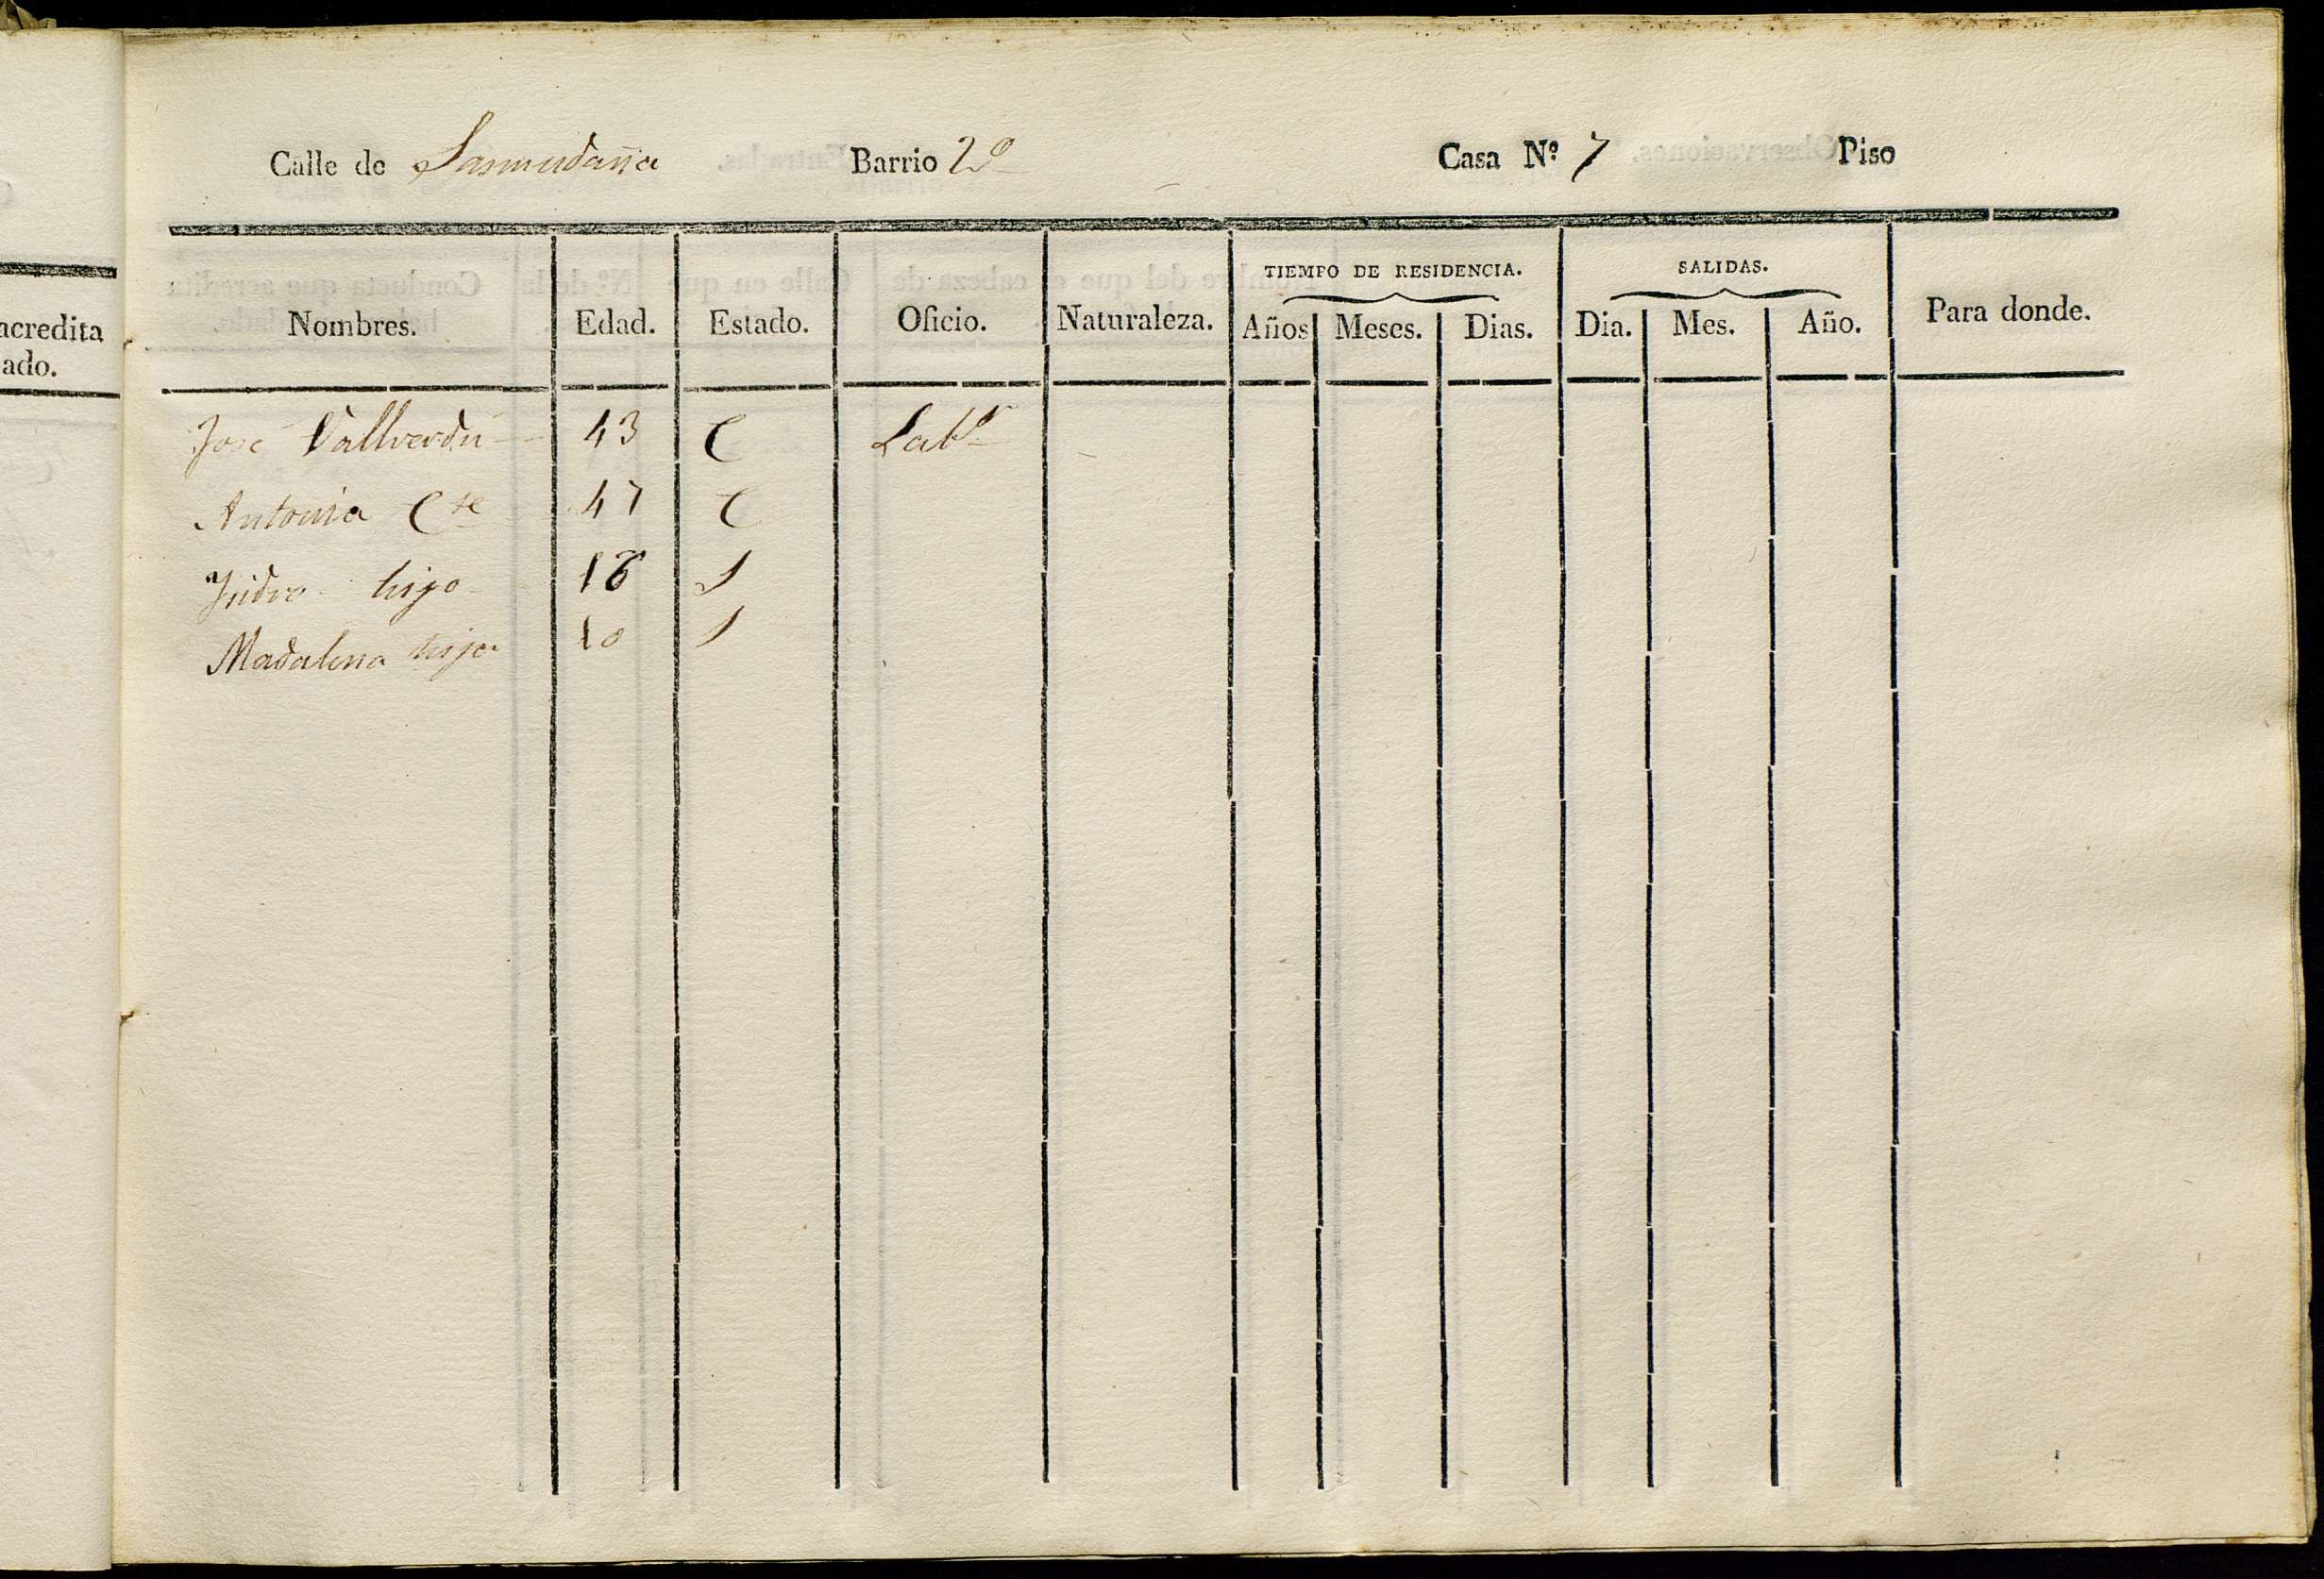 Calle de Sasmudaña Barrio 2º Casa Nº 7 Piso
TIEMPO DE RESIDENCIA. SALIDAS.
Nombres. Edad. Estado. Oficio. Naturaleza. Años Meses. Dias. Dia. Mes. Año. Para donde.
José Vallverdú 43 C Labr
Antonia Cte 47 C
Isidro hijo 18 S
Madalena hija 10 S
acredita
ado.